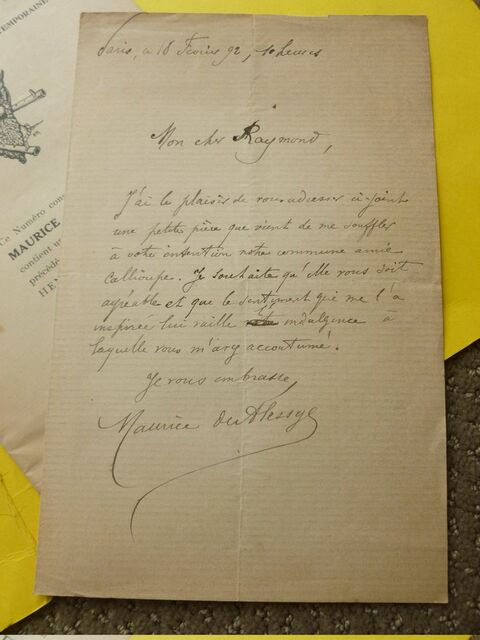 TEMPORAINE
Ce Numéro con
MAURICE
contient u
précédé
HEN
Paris, ce 16 Février 92, 10 heures
Mon cher Raymond,
J'ai le plaisir de vous adresser ci-joint
une petite pièce que vient de me souffler
à votre intention notre commune amie
Callioupe. Je souhaite qu'elle vous soit
agréable et que le sentiment qui me l'a
inspirée lui vaille indulgence à
laquelle vous m'avez accoutumé.
Je vous embrasse,
Maurice du Plessys